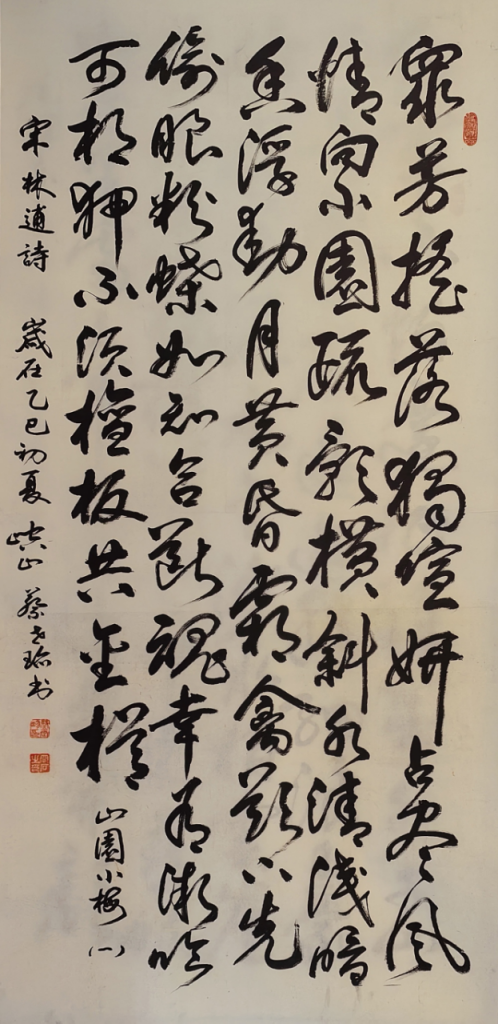 眾芳搖落獨暄妍占盡風
情向小園疏影橫斜水清淺暗
香浮動月黃昏霜禽欲下先
偷眼粉蝶如知合斷魂幸有微吟
可相狎不須檀板共金樽 山園小梅
宋林逋詩 歲在乙巳初夏 山 蔡 书